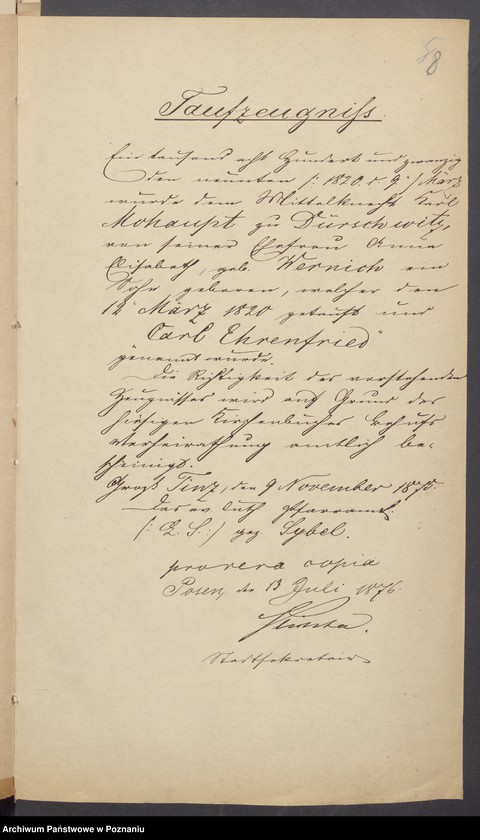 58
Taufzeugniss.
Ein tausend acht Hundert und zwanzig
den neunten /: 1820. d. 9. :/ März
wurde dem Mittelknecht Karl
Mohaupt zu Dürschwitz,
von seiner Ehefrau Anna
Elisabeth, geb. Wernich ein
Sohn geboren, welcher den
12 März 1820 getauft und
"Carl Ehrenfried"
genannt wurde.
Die Richtigkeit des vorstehenden
Zeugnisses wird auf Grund des
hiesigen Kirchenbuches behufs
Verheirathung amtlich be-
scheinigt.
Groß Tinz, den 9 November 1875.
Das ev. luth Pfarramt.
(: L. S. :) gez Sybel.
pro vera copia
Posen, den 13 Juli 1876.
Stadtsekretair
Archiwum Państwowe w Poznaniu